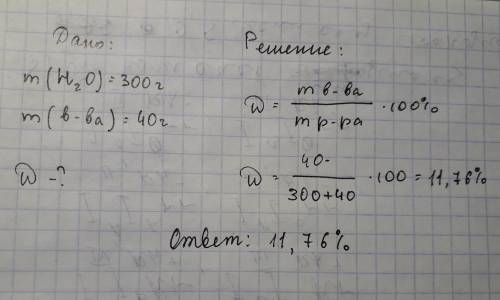 Дано:
m(H₂O)=300г
m(в-ва)=40г
W -?
Решение:
W = m в-ва / m р-ра · 100%
W = 40 / 300+40 · 100 = 11,76%
Ответ: 11,76%